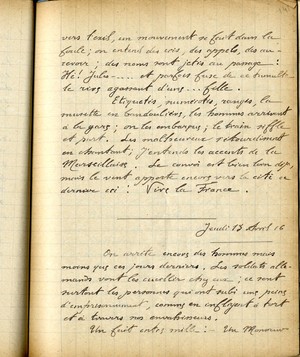 vers l'exil, un mouvement se fait dans la
foule; on entend des cris, des appels, des au-
revoir; des noms sont jetés au passage:
Hé! Jules.... et parfois fuse de ce tumulte
le rire agaçant d'une... folle.
Etiquetés, numérotés, rangés, la
musette en bandoulière, les hommes arrivent
à la gare; on les embarque; le train siffle
et part. Des malheureux
en chantant; j'entends les accents de la
Marseillaise. Le convoi est bien loin déjà,
mais le vent apporte encore vers la cité ce
dernier cri: Vive la France.
Jeudi 13 Avril 16
On arrête encore des hommes mais
moins que ces jours derniers. Les soldats alle-
mands vont les cueillir chez eux; ce sont
surtout les personnes qui ont subi une peine
d'emprisonnement, comme on inflige à tort
et à travers nos envahisseurs.
Un fait entre mille: - Un Monsieur